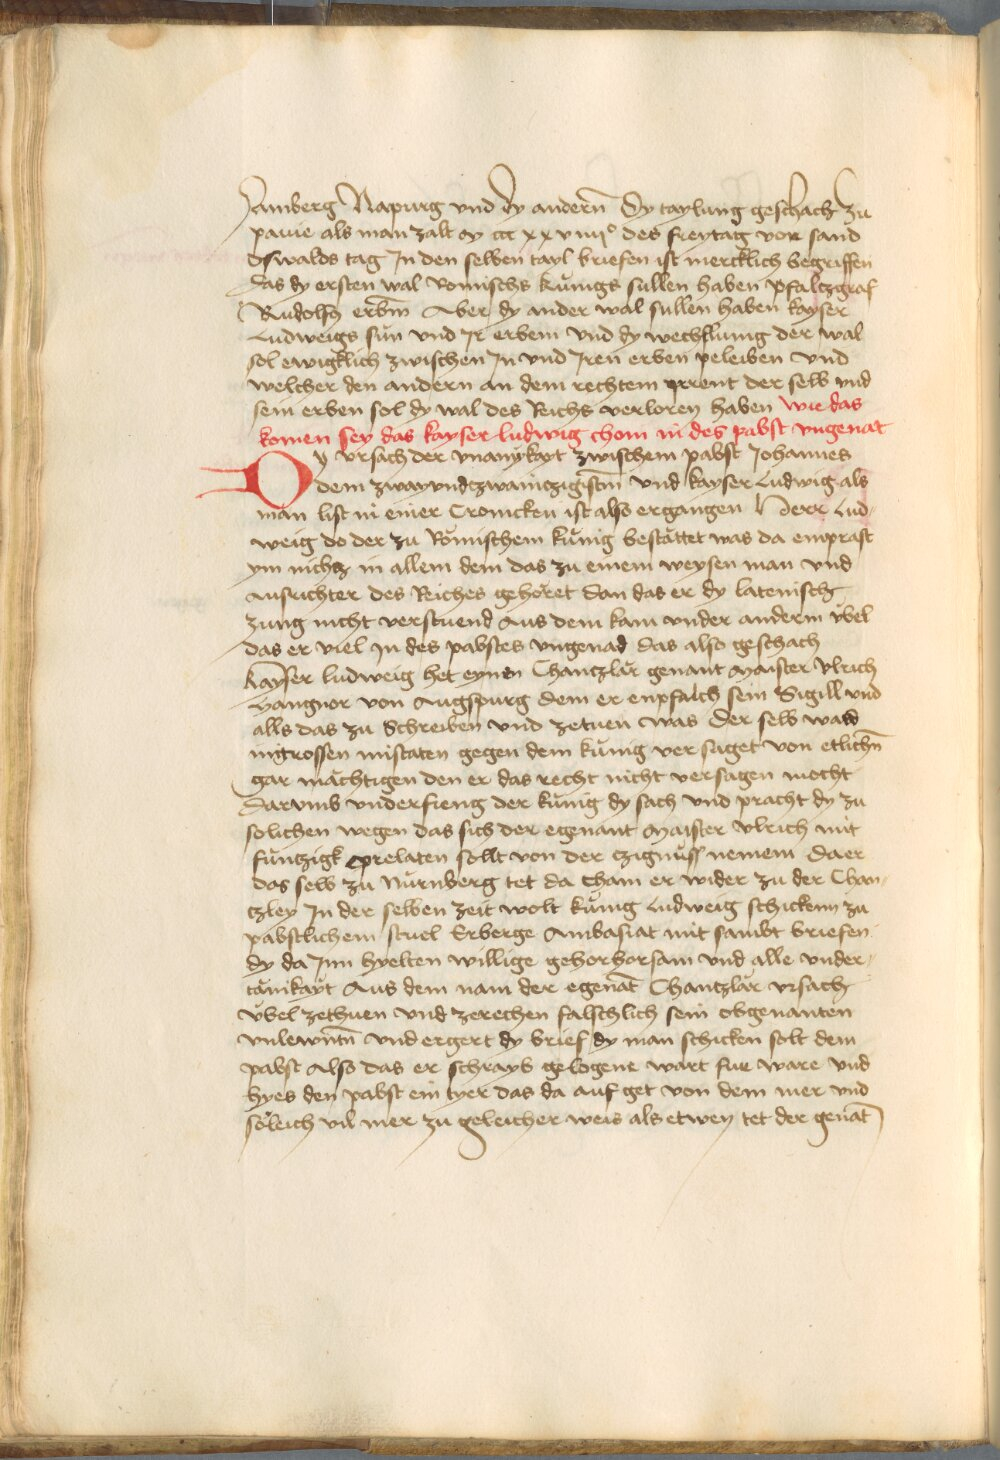 Amberg Napurg vnd dy andern̄ Dy taylung geschach zu
pauie als man zalt m ccc xx viiii° des freytag vor sand
Oswalds tag In den selben tayl briefen ist mercklich begriffen
das dy ersten wal Romischs kůnigs sullen haben pfalczgraf
Rudolfs erbm̄ Aber dy ander wal sullen haben kayser
Ludweigs sůn vnd Ir erbem vnd dy wechslung der wal
sol ewigklich zwischen In vnd Iren erben peleiben vnd
welcher den andern an dem rechtem irrent der selb vnd
sein erben sol dy wal des Reichs verloren haben wie das
komen sey das kayser ludwig chom in des pabst vngenat
Dy vrsach der vnanykayt zwischem pabst Johannes
dem zwayundczwainczigistm̄ vnd kayser Ludwig als
man list in einer Cronicken ist also ergangen Herr Lud-
weig do der zu Römischem kůnig bestättet was da emprast
ym nichtz in allem dem das zu einem weysen man vnd
Ausrichter des Reiches gehöret dan das er dy lateinisch
zung nicht verstuend Aus dem kam vnder anderm vbel
das er viel In des pabstes vngenad das also geschach
kayser ludweig het eynen Chantzlär genant Maister Vlrich
Hangnor von Augspurg dem er enpfalch sein Sigill vnd
alls das zu Schreiben vnd zetuen was Der selb ward
in grossen mistaten gegen dem kůnig ver saget von etlichn̄
gar mächtigen den er das recht nicht versagen mocht
Darvmb vnderfieng der kůnig dy sach vnd pracht dy zu
solichen wegen das sich der egenant Maister Vlrich mit
fůnczigk prelaten sollt von der czignůss nemem da er
das selb zu Nürnberg tet da cham er wider zu der Chan-
czley In der selben zeit wolt kůnig Ludweig schickenn zu
pabstlichem stuel Erberge Ambasiat mit sambt briefen
dy da Inn hyelten willige gehorhorsam vnd alle vnder-
tänikayt Aus dem nam der egenāt Chantzlär vrsach
vbel zethuen vnd zerechen falschlich sein obgenanten
vnlewntn̄ vnd ergert dy brief dy man schicken solt dem
pabst Also das er schrayb gelogene wart fur ware vnd
hyes den pabst ein tyer das da auf get von dem mer vnd
söleich vil mer zu geleicher weis als etwen tet der genāt